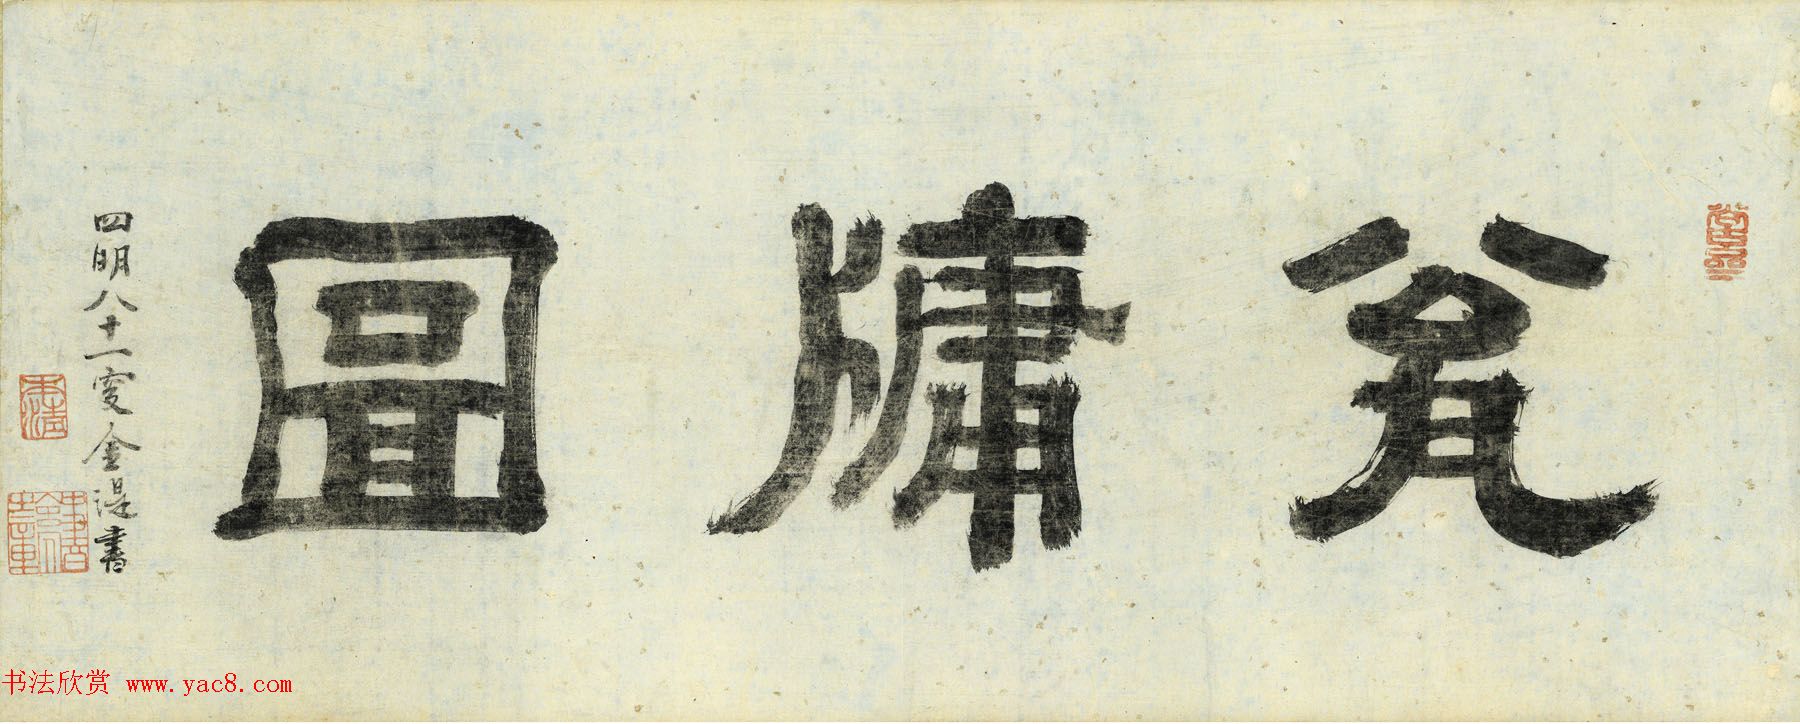 瓮牖圖
四明八十一叟金湜書
本清
书法欣赏 www.yac8.com